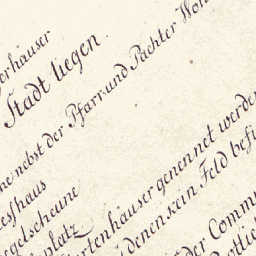 erhäuser
Stadt liegen.
ne nebst der Pfarr: und Pachter Woh
esshaus
egelscheune
platz
tenhäuser genennet werde
denen sein Feld bef
der Comm